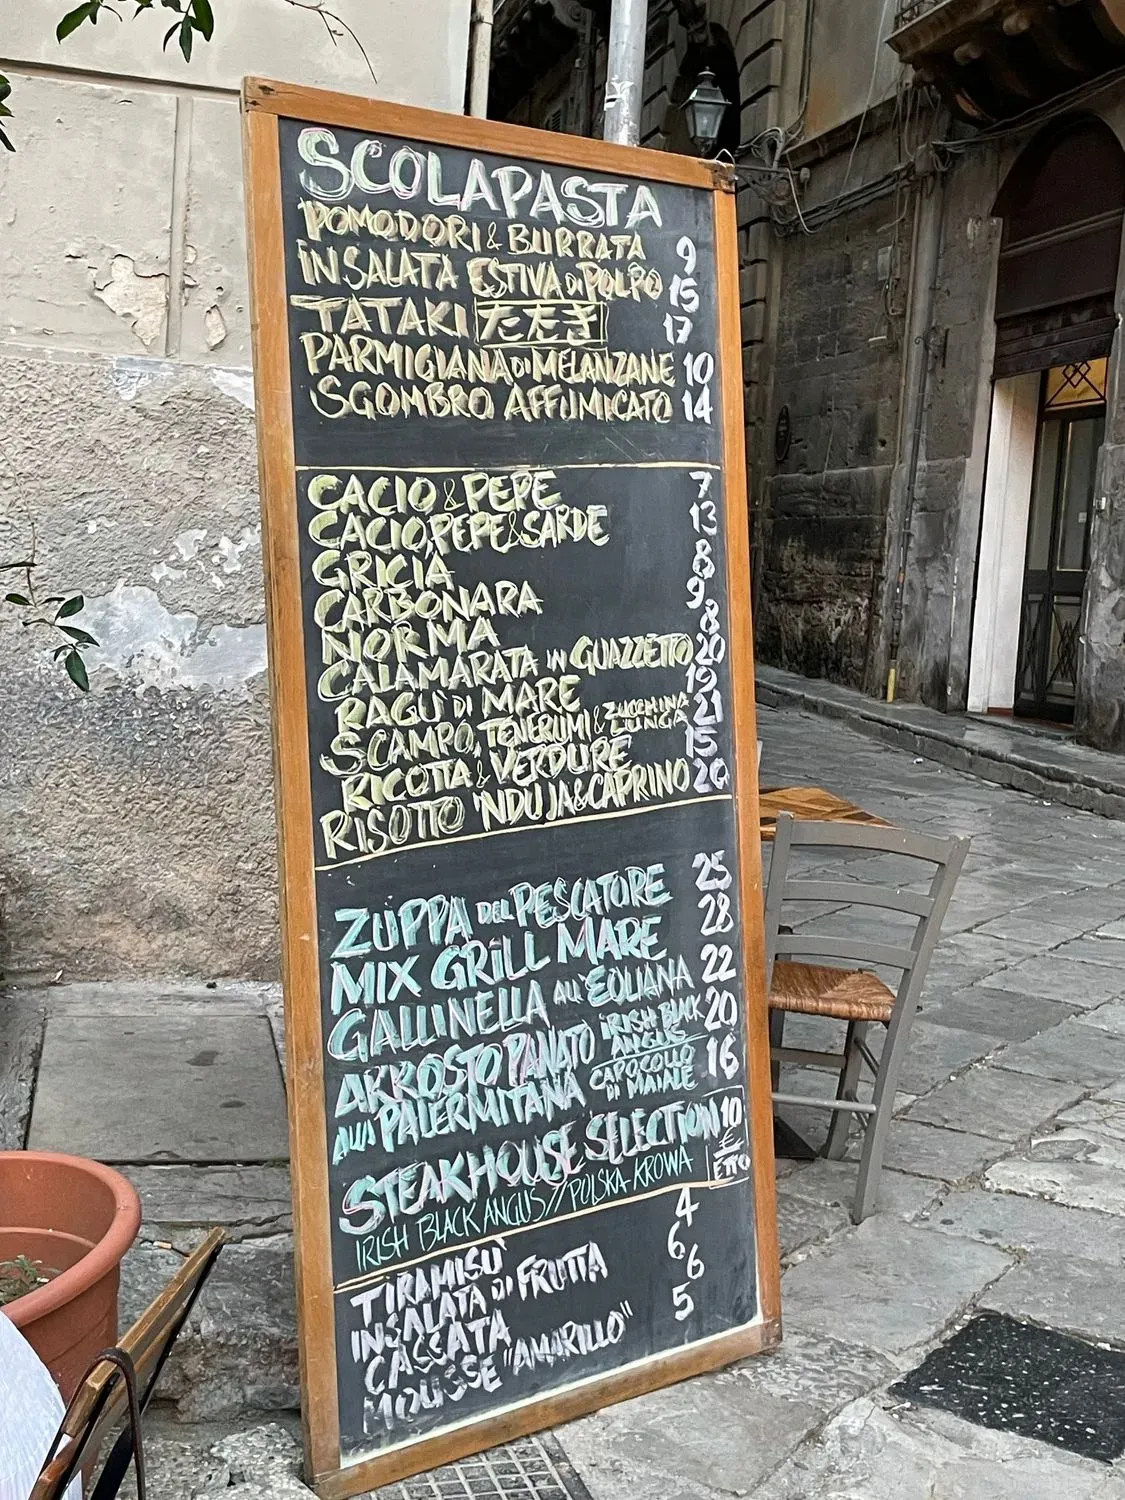 SCOLAPASTA
POMODORI & BURRATA 9
INSALATA ESTIVA DI POLPO 15
TATAKI たたき 17
PARMIGIANA DI MELANZANE 10
SGOMBRO AFFUMICATO 14
CACIO & PEPE 7
CACIO, PEPE & SARDE 13
GRICIA 8
CARBONARA 9
NORMA 8
CALAMARATA IN GUAZZETTO 20
RAGU' DI MARE 19
SCAMPO, TENERUMI & ZUCCHINA LUNGA 21
RICOTTA & VERDURE 15
RISOTTO 'NDUJA & CAPRINO 20
ZUPPA DEL PESCATORE 25
MIX GRILL MARE 28
GALLINELLA ALL'EOLIANA 22
ARROSTO PANATO IRISH BLACK ANGUS 20
ALLA PALERMITANA CAPOCOLLO DI MAIALE 16
STEAKHOUSE SELECTION 10 € ETTO
IRISH BLACK ANGUS // POLSKA KROWA
TIRAMISU' 4
INSALATA DI FRUTTA 6
CASSATA 6
MOUSSE "AMARILLO" 5